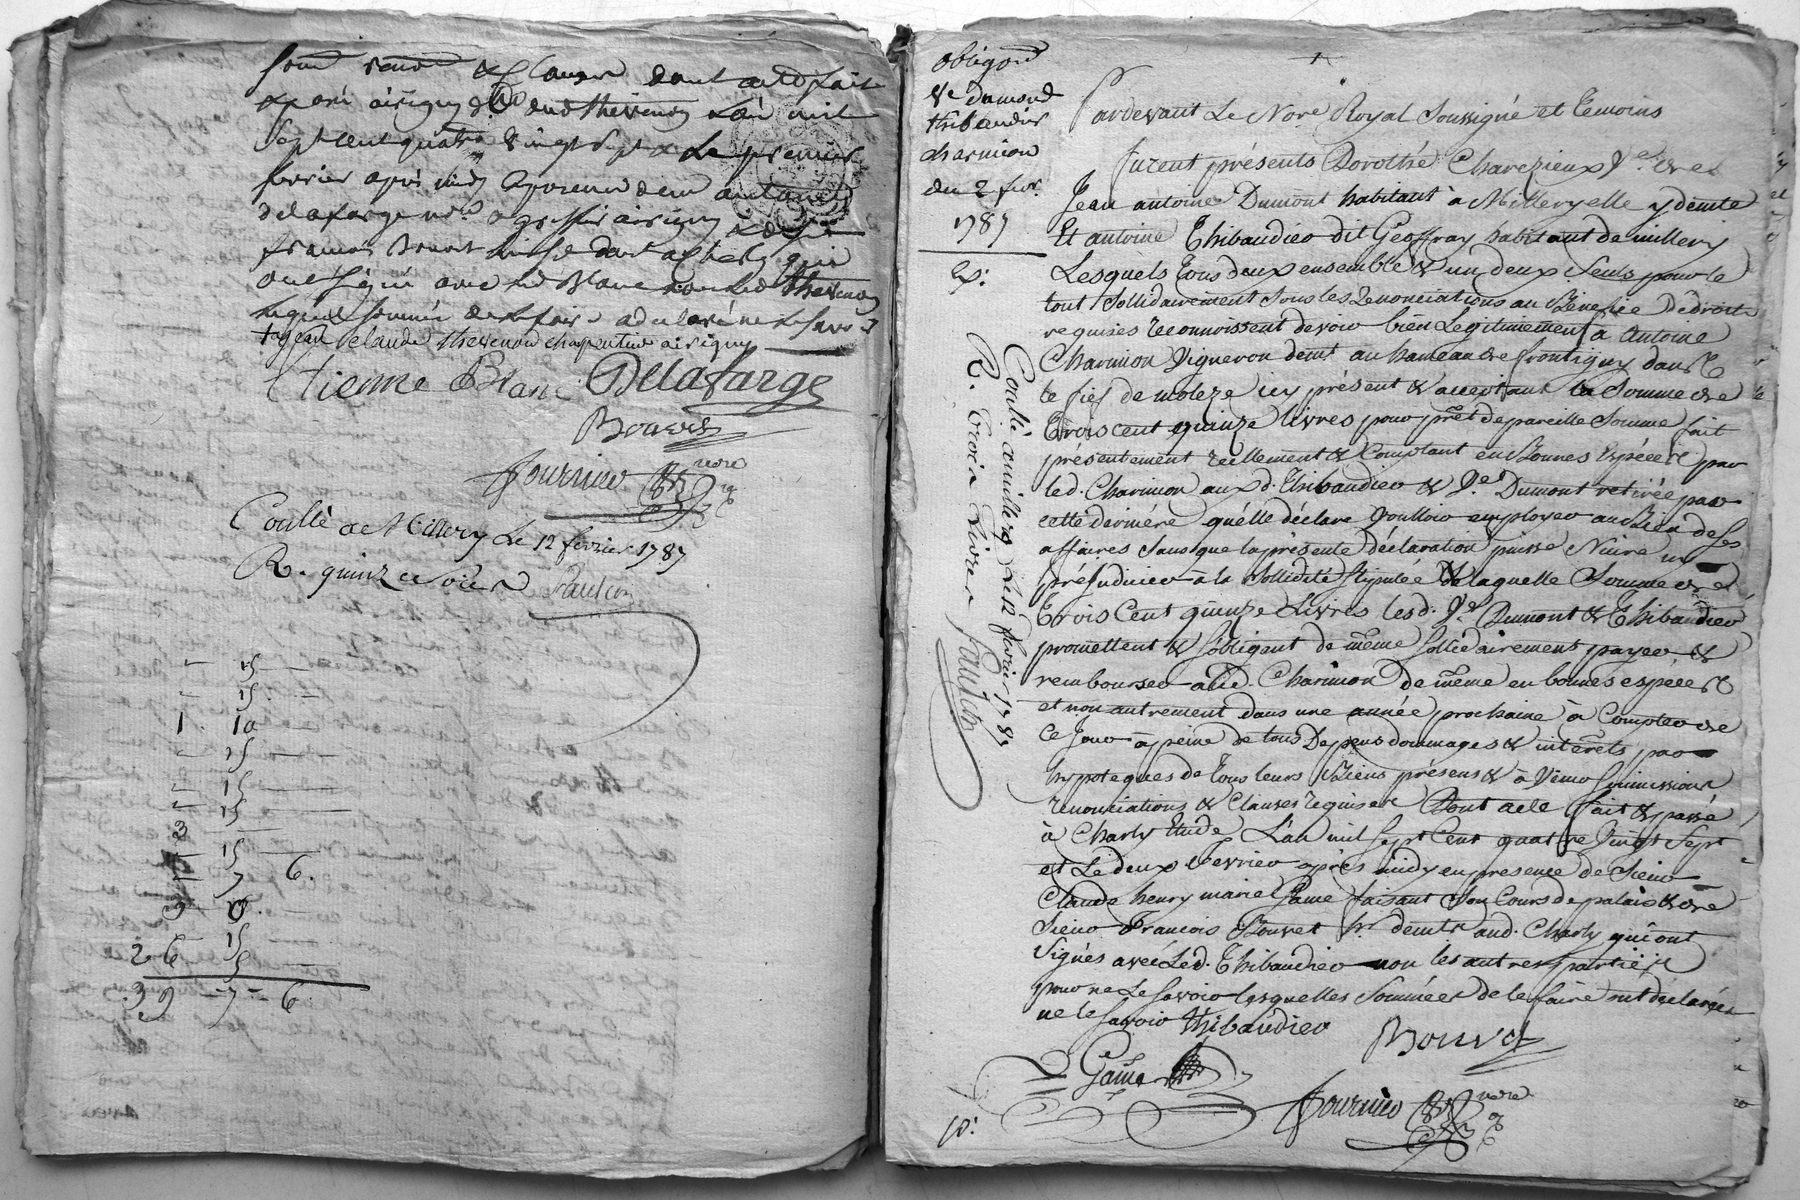 dont acte fait
sept cent quatre vingt sept & le premier
fevrier après midy en presence d'antoine
delafarge
françois Bouvet
ont signé avec led Blanc non led thevenon
lequel sommé de le faire a declaré ne le savoir
claude thevenon charpentier a irigny
Etienne Blanc Delafarge
Bouvet
fournier nore
Contlé a Millery le 12 fevrier 1787
R. quinze sols Faulcon
15
15
1. 10
15
15
15
3
15
7 6.
3 10.
15
26 15
39 - 7 - 6
obligon
Ve dumond
thibaudier
charmion
du 2 fevr.
1787
Ex:
Contlé a millery le 12 fevrier 1787
R. trois Livres faulcon
Pardevant Le Nore Royal Soussigné et temoins
furent présents Dorothé Charezieux Ve. de
Jean antoine Dumont habitant à Millery elle y demte
Et antoine Thibaudier dit Geoffray habitant de millery
Lesquels tous deux ensemble & un deux seuls pour le
tout sollidairement sous les renonciations au Bénefice De droit
requises reconnoissent devoir bien Legitimement a Antoine
Charmion Vigneron demt au hameau de frontigny dans
le fief de moleze icy présent & acceptant la Somme de
Trois cent quinze livres pour prêt de pareille Somme fait
présentement réellement & Comptant en Bonnes Espéces par
led. Charmion aux d. Thibaudier & Ve. Dumont retirée par
cette derniére qu'elle déclare Voulloir employer au Bien de ses
affaires sans que la présente déclaration puisse Nuire ni
préjudicier à la Sollidité stipulée De laquelle Somme de
Trois Cent quinze Livres lesd. Ve. Dumont & Thibaudier
promettent & s'obligent de même sollidairement payer &
rembourser aud. Charmion de même en bonnes espéces
et non autrement dans une année prochaine à Compter de
Ce Jour à peine de tous Depens dommages & interêts par
hypoteques de tous leurs Biens présens & à Venir soumissions
renonciations & Clauses requises Dont acte fait & passé
à Charly Etude L'an mil sept Cent quatre Vingt Sept
et Le deux fevrier après midy en presence de Sieur
Claude henry marie Game faisant Son Cours de palais & de
Sieur François Bouvet demts aud. Charly qui ont
Signés avec Led. Thibaudier non les autres parties
pour ne Le savoir lesquelles sommées de le faire ont declarées
ne le savoir thibaudier
Bouvet
Game
fournier nore